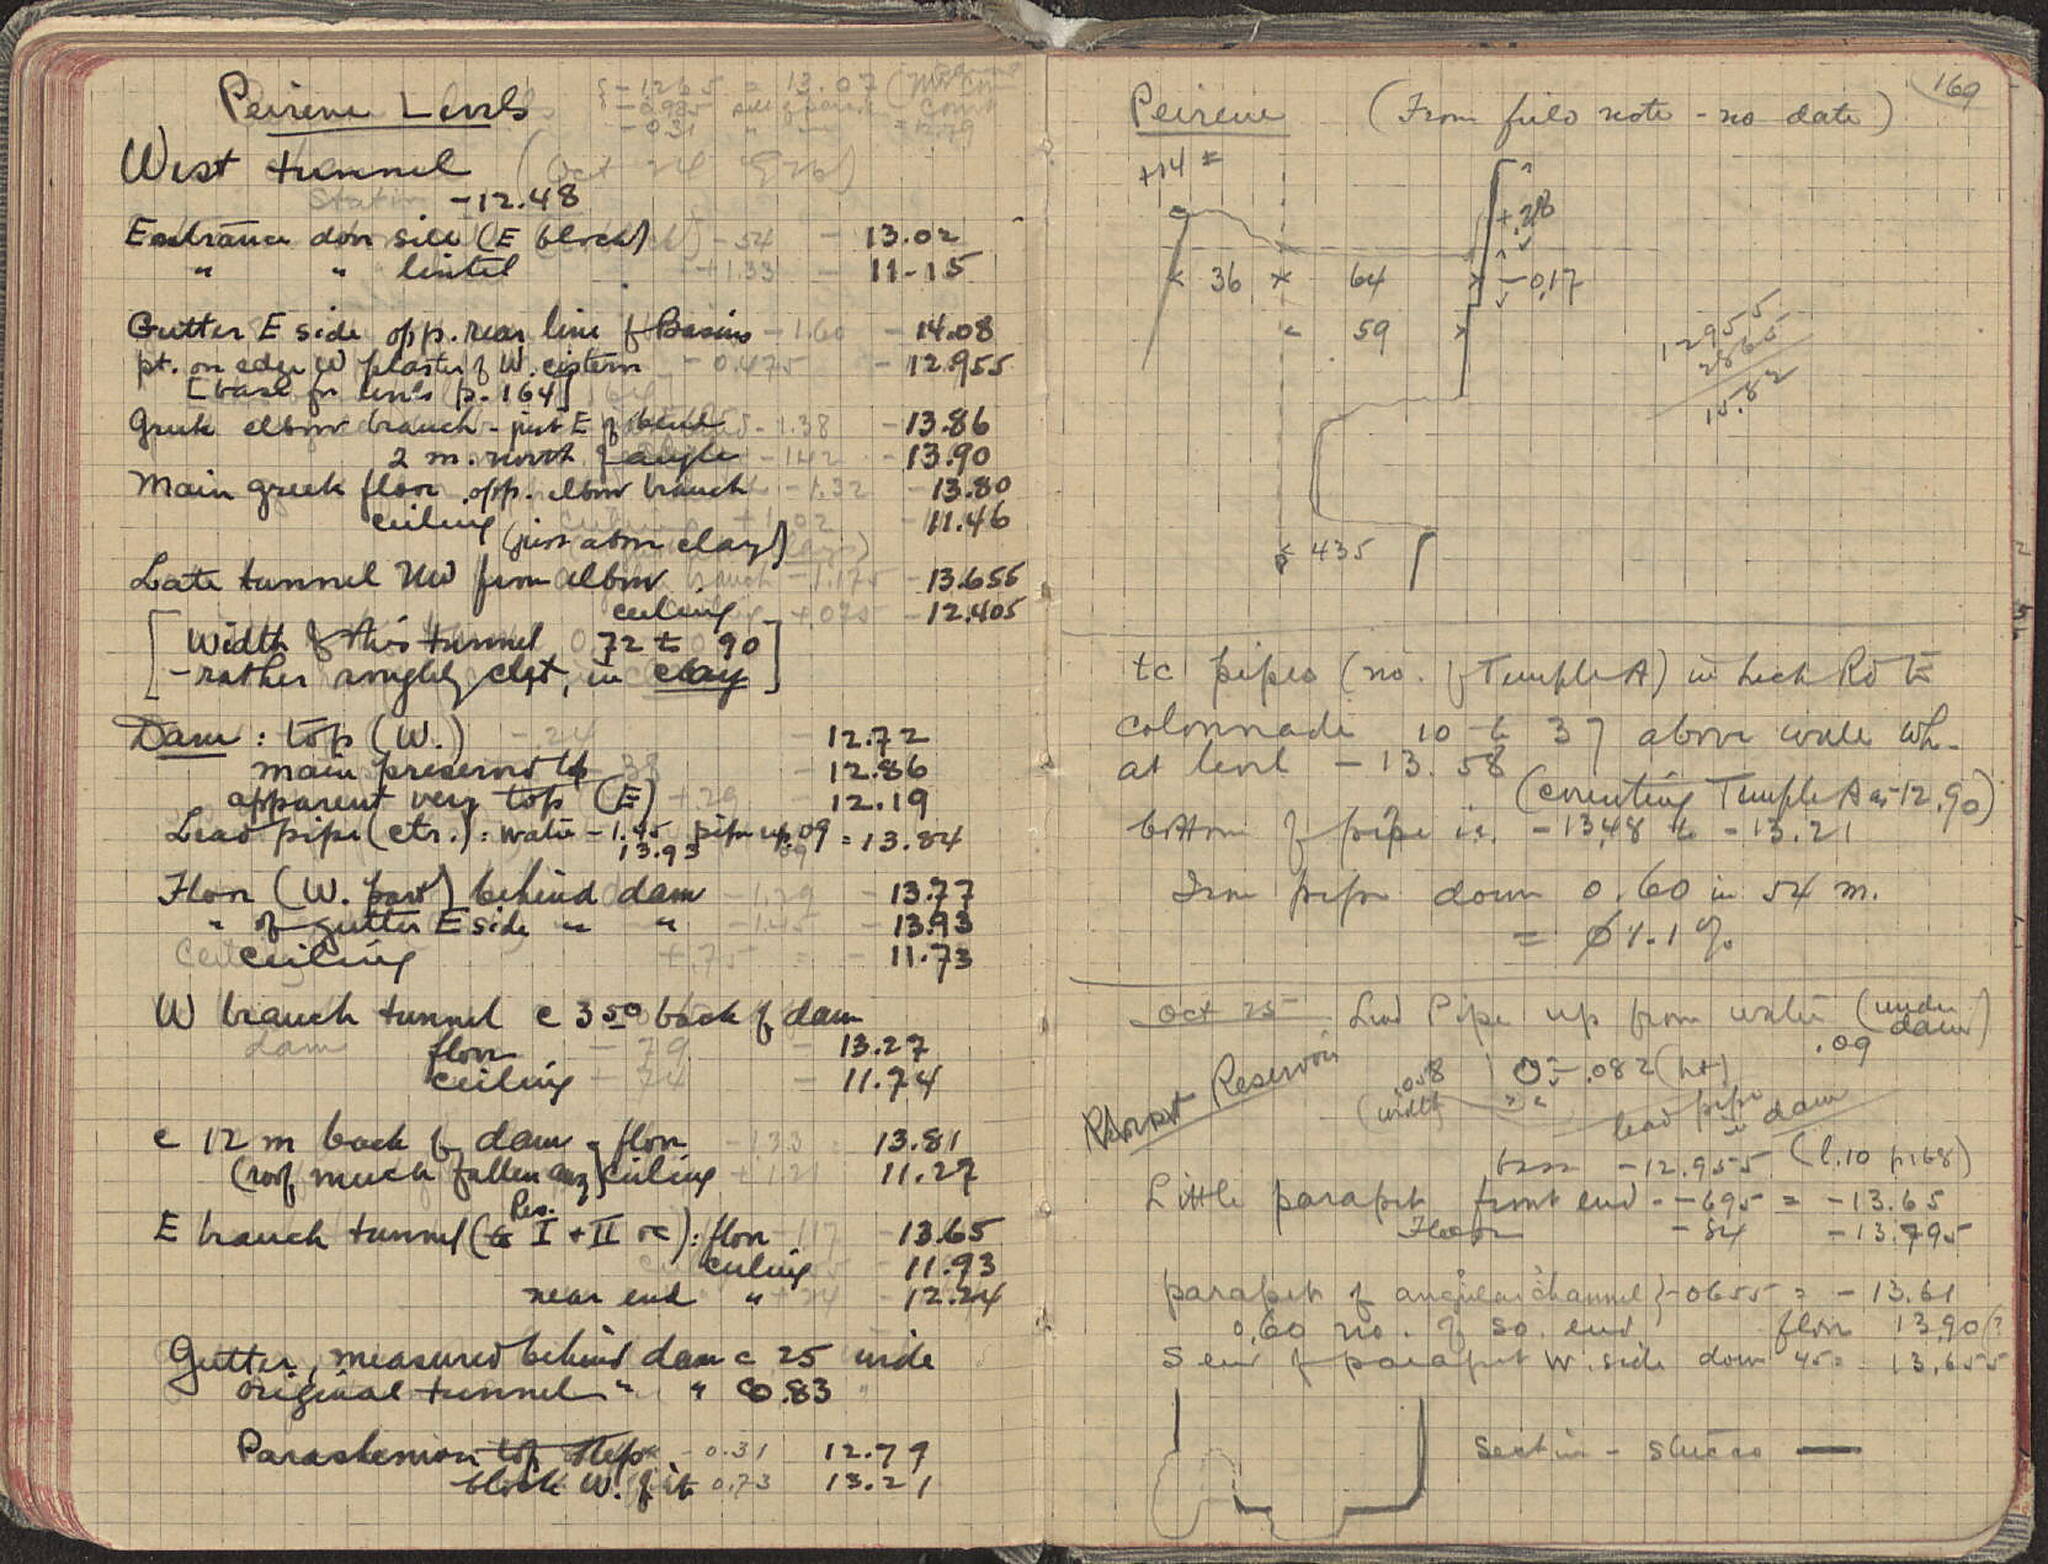 Peirene Levels
{-1.265 = 13.07
West tunnel (Oct 24 1926)
Station -12.48
Entrance door sill (E block) -54 -13.02
" " lintel +1.33 - 11.15
Gutter E side opp. rear line of Basins -1.60 -14.08
pt. on edge W plaster of W. cistern -0.475 -12.955
[base for levels p. 164]
Greek elbow branch - just E of bend -1.38 -13.86
2 m. north of angle -1.42 -13.90
Main greek floor opp. elbow branch -1.32 -13.80
ceiling +1.02 -11.46
(just above clay)
Late tunnel NW from elbow -1.175 -13.655
ceiling +.075 -12.405
[Width of this tunnel .72 to 90
-rather roughly cut, in clay]
Dam: top (W.) -24 -12.72
main preserved top 38 -12.86
apparent very top (E) +.29 12.19
Lead pipe (ctr.): water -1.45 pipe up .09 = 13.84
13.93 09
Floor (W. part) behind dam -1.29 -13.77
" of gutter E side " " -1.45 -13.93
ceiling +.75 = -11.73
W branch tunnel c 3.50 back of dam
dam floor -79 -13.27
ceiling -74 -11.74
c 12 m back of dam - floor -1.33 13.81
(roof much fallen away) ceiling +1.21 11.27
E branch tunnel (to Res. I + II etc): floor -1.17 -13.65
ceiling -11.93
near end " +.24 -12.24
Gutter, measured behind dam c 25 wide
original tunnel " " c 0.83
Paraskenion top step -0.31 12.79
block W. of it 0.73 13.21
169
Peirene (From field note - no date)
+14 ±
+.28
36 64 -0.17
59
12955
2865
15.82
435
tc pipes (no. of Temple A) in Lech Rd to
colonnade 10 to 37 above water wh.
at level -13.58
(counting Temple A as -12.90)
bottom of pipe is. -13.48 to -13.21
Iron pipe down 0.60 in 54 m.
= 1.1%
Oct 25 Lead Pipe up from water (under dam)
.09
Reservoir
.058 (width) .082 (ht)
lead pipe in dam
base -12.955 (l. 10 p. 168)
Little parapet front end - -695 = -13.65
Floor -84 -13.795
parapet of angular channel} -0655 = -13.61
0.60 no. of so. end floor 13.90(?
S end of parapet W. side down 45 = 13.655
Section - stucco —